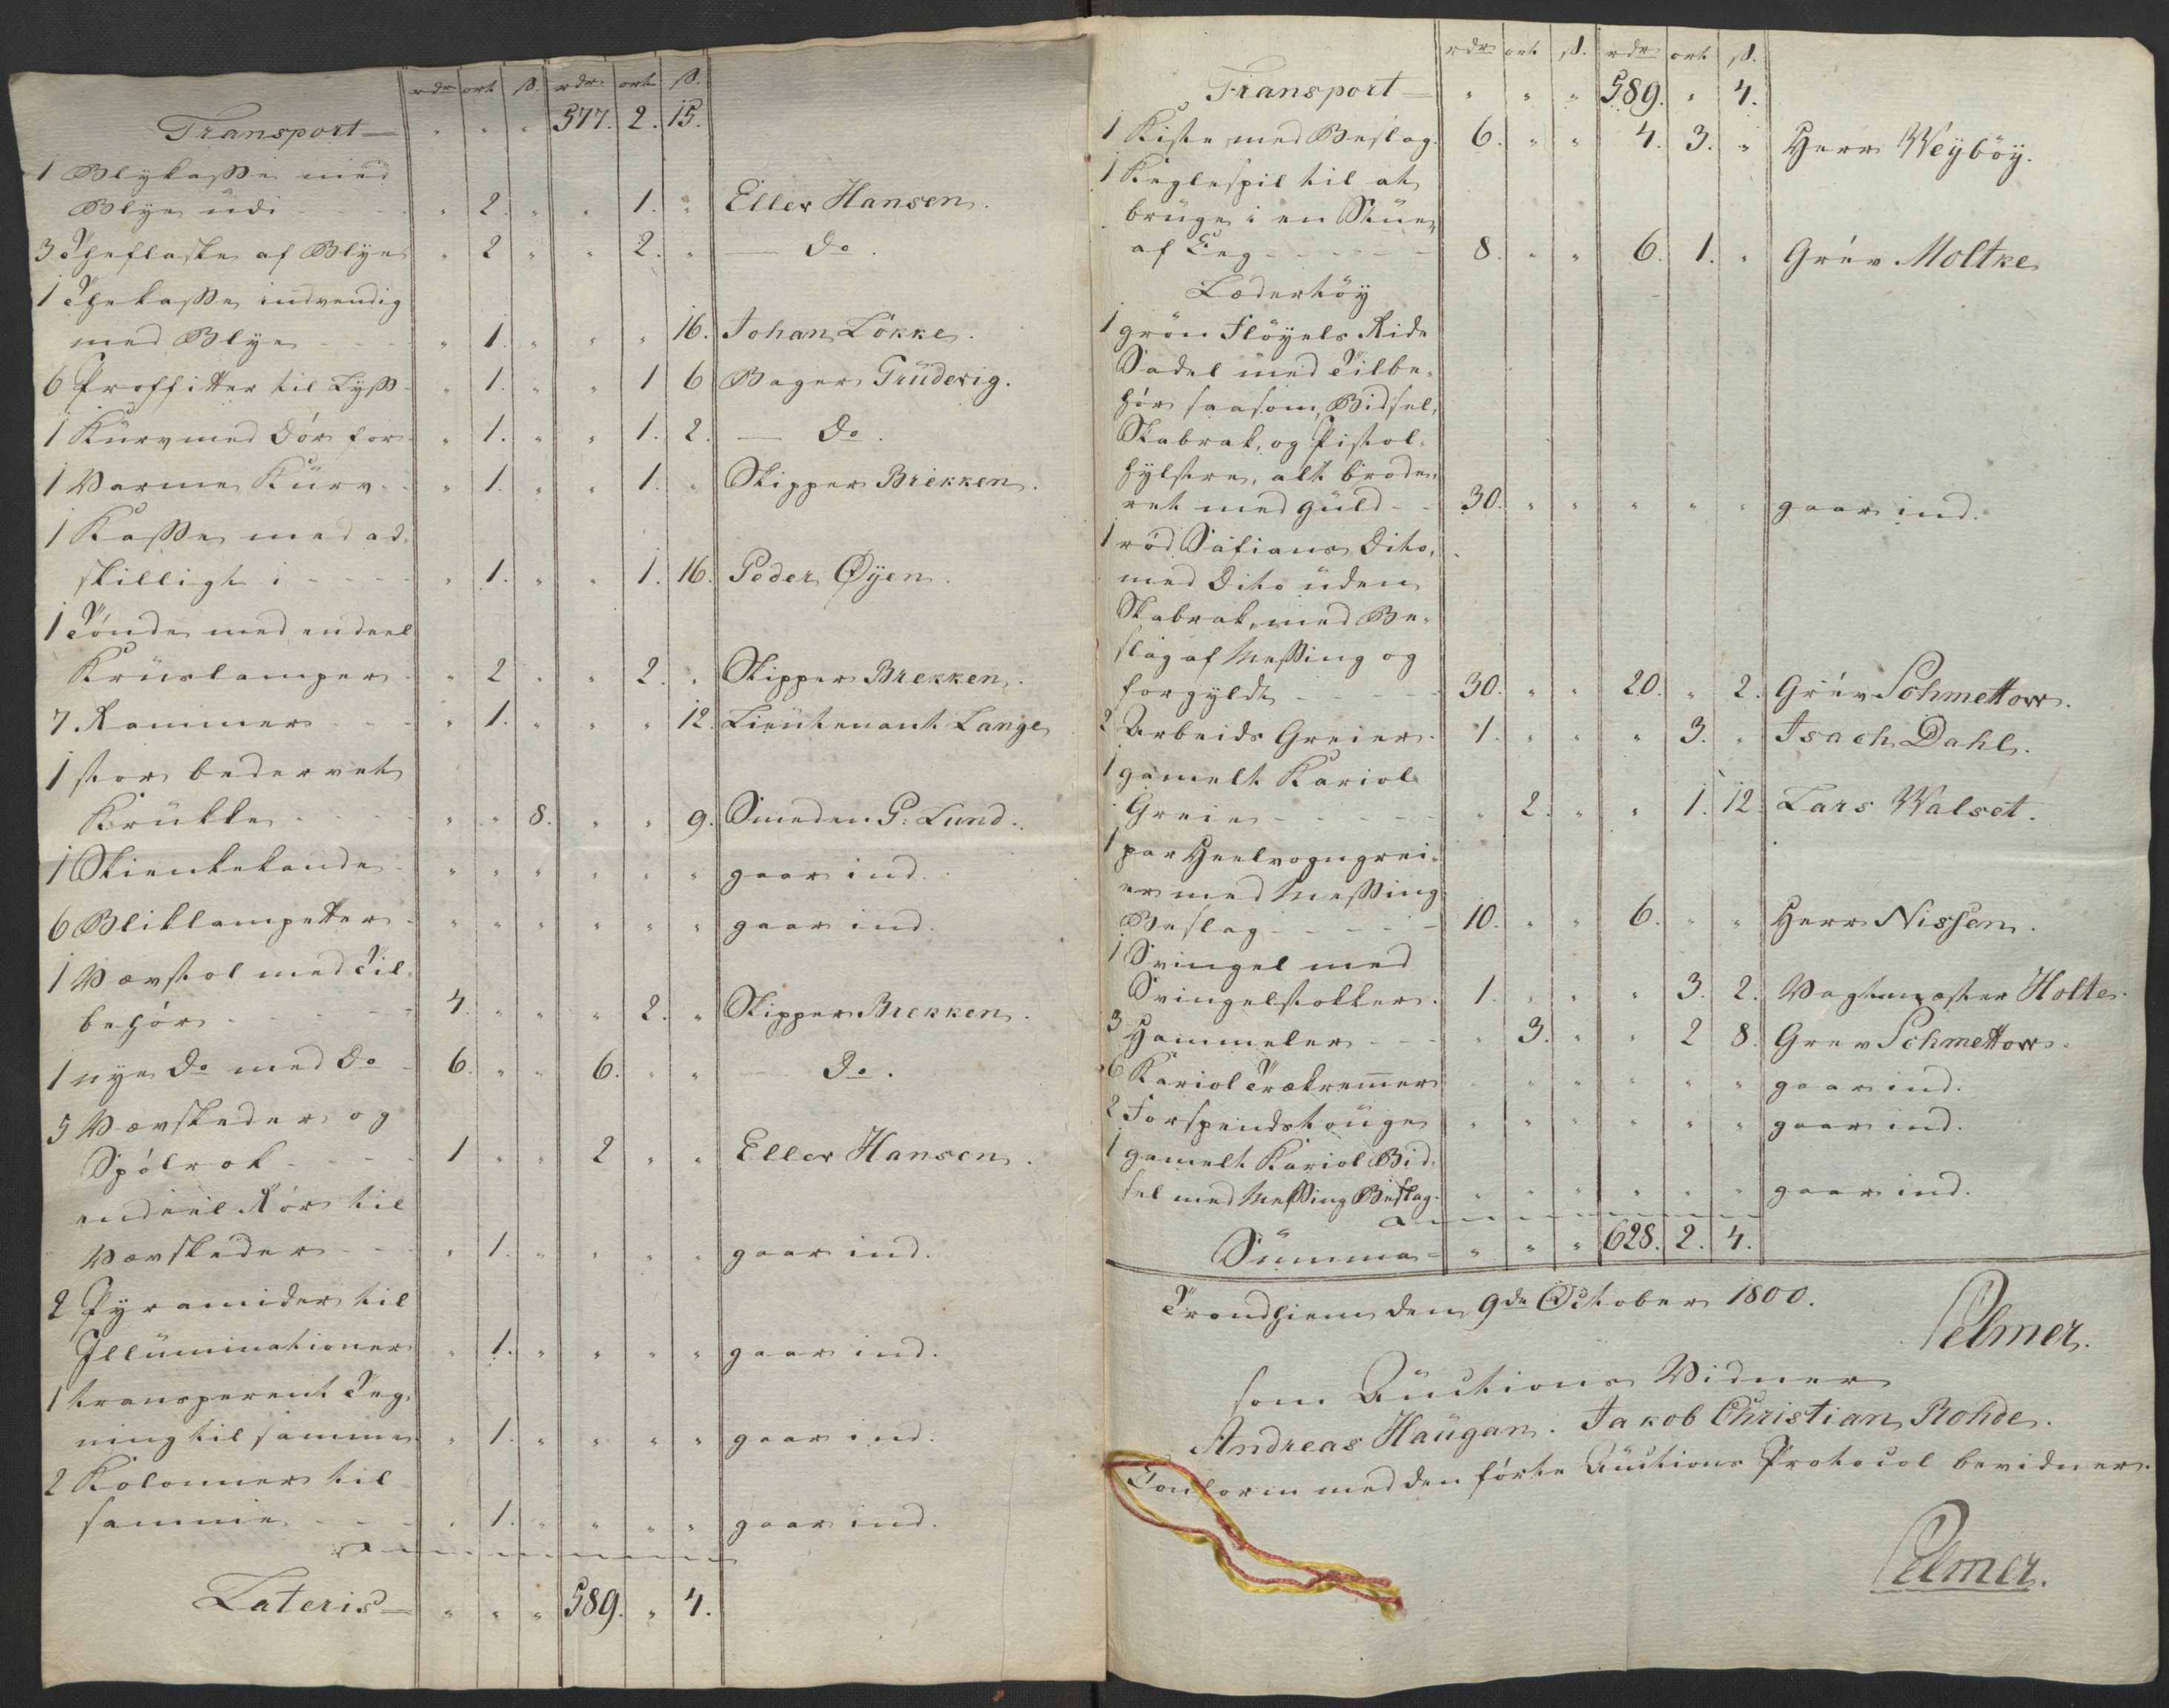 rdr ort ß. rdr ort ß.
Transport — " " " 577. 2. 15.
1 Blykasse med
Blye udi - - - - " 2. " " 1. " Eller Hansen.
3 Theflaske af Blye " 2 " " 2. " — Do.
1 Thekasse indvendig
med Blye - - - " 1. " " " 16. Johan Lökke.
6 Proffitter til Lyss - " 1. " " 1 6 Bager Trüderig.
1 Kürv med Dör for - " 1. " " 1. 2. — Do.
1 Varme Kürv - - " 1. " " 1. " Skipper Brekken.
1 Kasse med ad-
skilligt i - - - - " 1. " " 1. 16. Peder Öyen.
1 Tönde med endeel
Krüslamper - " 2 " " 2. " Skipper Brekken.
7 Rammer - - - " 1. " " " 12. Lieutenant Lange
1 stor bedervet
Krükke - - - - " " 8. " " 9. Smeden P: Lund.
1 Skienkekande - " " " " " " gaar ind.
6 Bliklampetter - " " " " " " gaar ind.
1 Vævstol med Til-
behör - - - - - 4. " " " 2. " Skipper Brekken.
1 nye Do med Do - 6. " " 6. " " — Do.
5 Vævskeder og
Spölrok - - - - 1 " " 2 " " Eller Hansen.
endeel Rör til
Vævskeder - - - " 1. " " " " gaar ind.
2 Pyramider til
Illüminationer " 1. " " " " gaar ind.
1 transperent Teg-
ning til samme - " 1. " " " " gaar ind.
2 Kolonner til
samme - - - - " 1. " " " " gaar ind.
Lateris — " " " 589. " 4.
rdr ort ß. rdr ort ß.
Transport — " " " 589. " 4.
1 Kiste med Beslag. 6. " " 4. 3. " Herr Weyböy.
1 Keglespil til at
brüge i en Stüe,
af Eeg - - - - - - 8. " " 6. 1. " Grév Moltke
Lædertöy
1 grön Flöyels Ride
Sadel med Tilbe-
hör saasom, Bidsel,
Skabrak, og Pistol-
hylstre, alt brode-
ret med güld - - 30. " " " " " gaar ind.
1 röd Safians Dito,
med Dito üden
Skabrak, med Be-
slag af Messing og
forgyldt - - - - - 30. " " 20. " 2. Grév Schmettow.
2 Arbeids Greier. 1. " " " 3. " Isach Dahl.
1 gamelt Kariol
Greie - - - - - " 2. " " 1. 12. Lars Walset.
1 par Heelvogngrei-
er med Messing
Beslag - - - - - 10. " " 6. " " Herr Nissen.
1 Svingel med
Svingelstokker. 1. " " " 3. 2. Vagtmester Holte.
3 Hammeler - - - " 3. " " 2 8. Grev Schmettow.
6 Kariol Trækremmer " " " " " " gaar ind.
2 Forspendstouge " " " " " " gaar ind.
1 gamelt Kariol Bid-
sel med Messing Beslag. " " " " " " gaar ind.
Summa — " " " 628. 2. 4.
Trondhiem den 9de October 1800.
Pelmer.
som Auctions Vidner
Andreas Haügan. Jakob Christian Rohde.
Conform med den förte Auctions Protocol bevidner.
Pelmer.